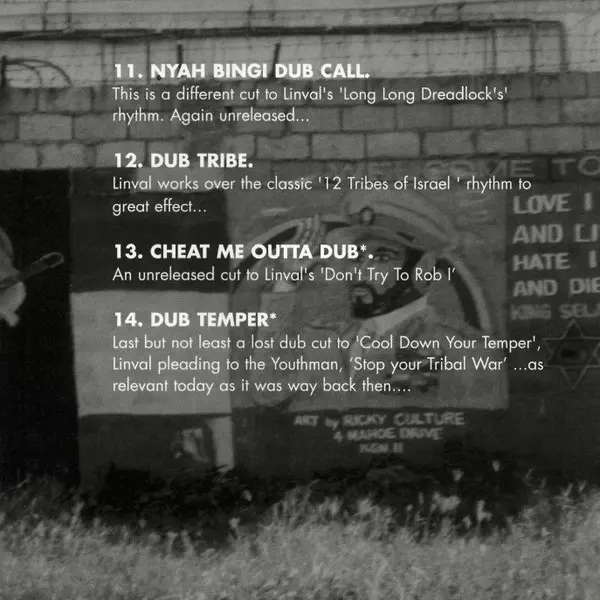 11. NYAH BINGI DUB CALL.
This is a different cut to Linval's 'Long Long Dreadlock's'
rhythm. Again unreleased...
12. DUB TRIBE.
Linval works over the classic '12 Tribes of Israel ' rhythm to
great effect...
13. CHEAT ME OUTTA DUB*.
An unreleased cut to Linval's 'Don't Try To Rob I’
14. DUB TEMPER*
Last but not least a lost dub cut to 'Cool Down Your Temper',
Linval pleading to the Youthman, ‘Stop your Tribal War’ ...as
relevant today as it was way back then....
TO
LOVE I
AND LI
HATE I
AND DIE
KING SELA
ART by RICKY CULTURE
4 MAHOE DRIVE
KGN 11